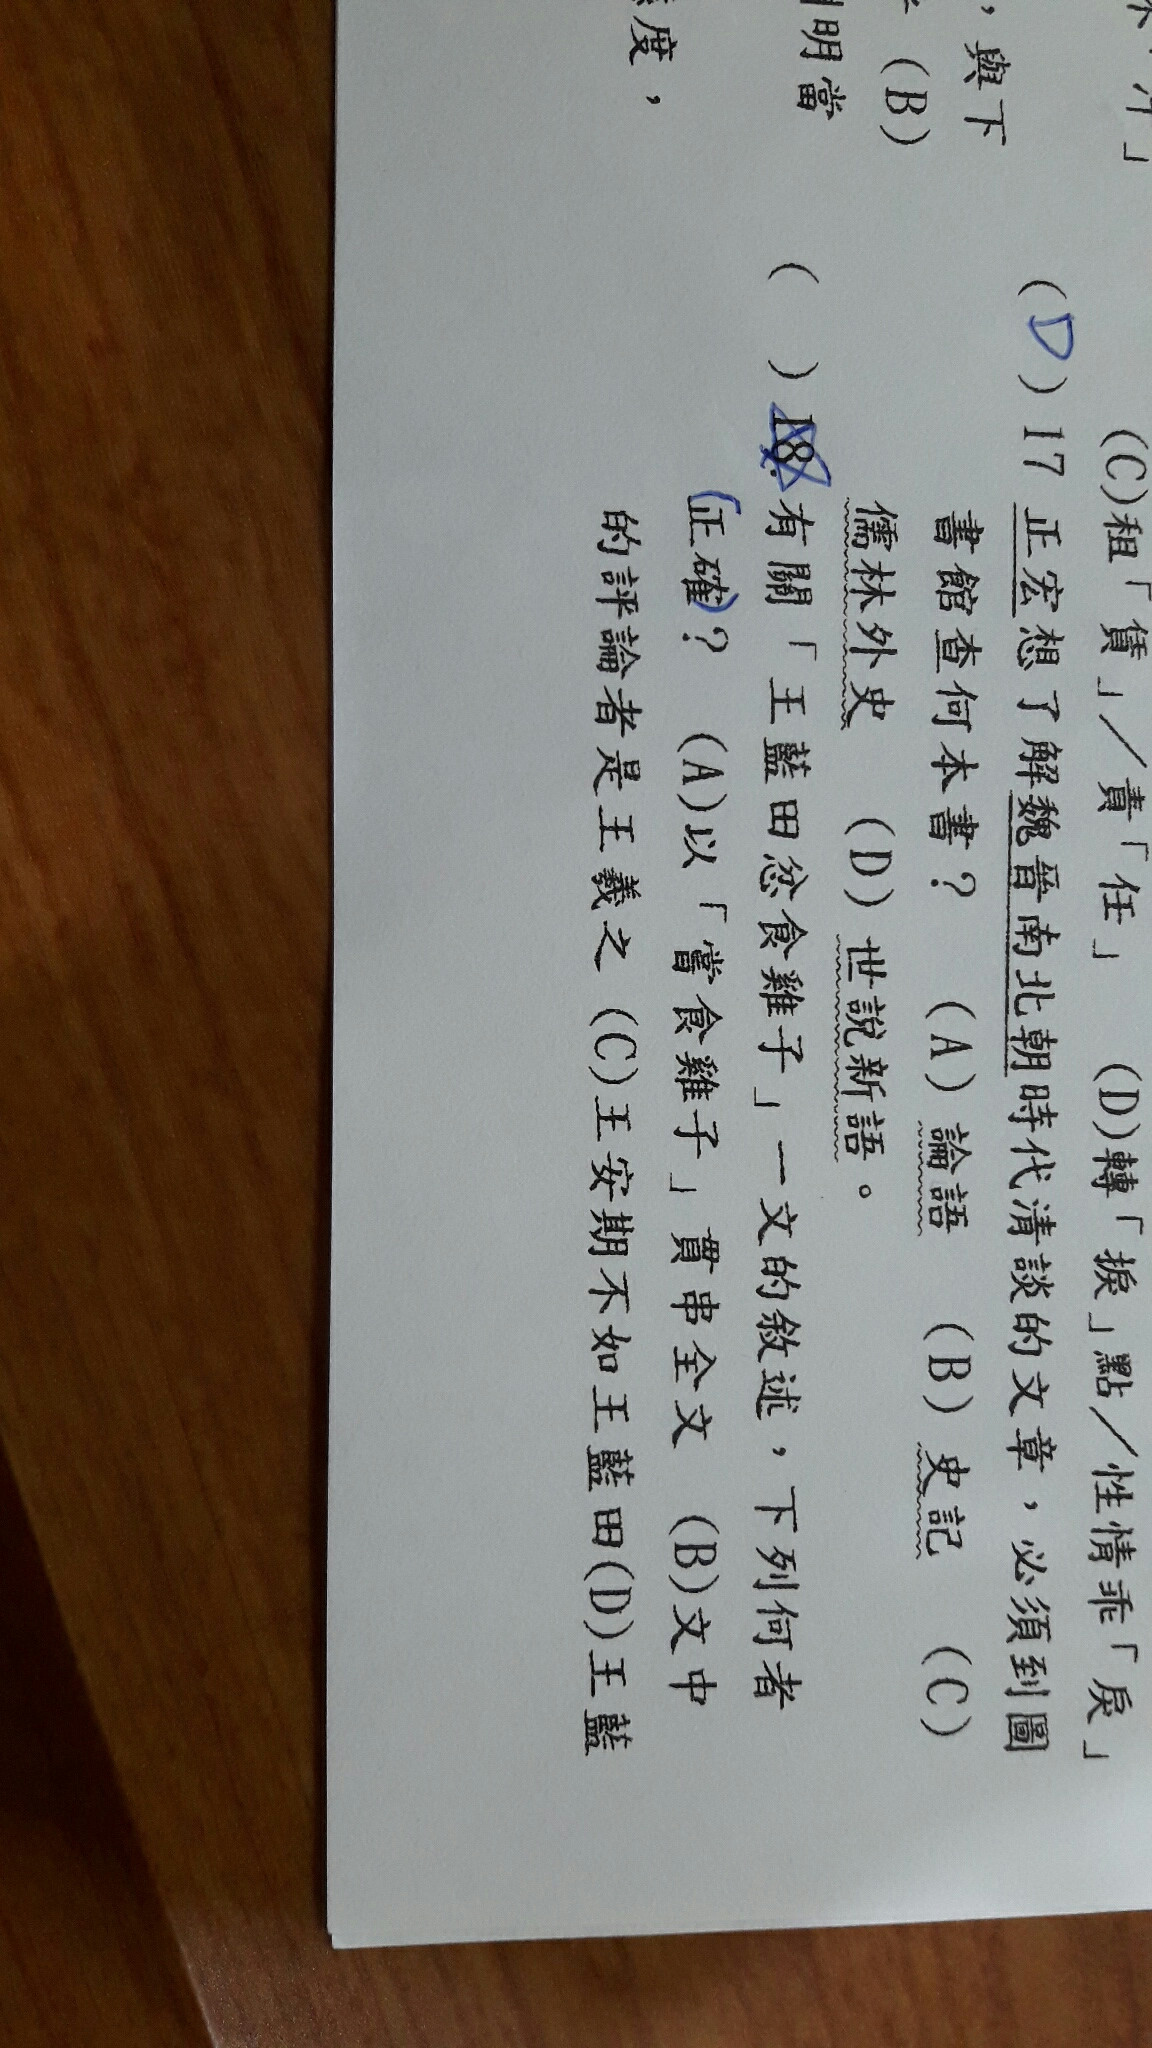 汗」
，與下
(B)
明當
度，
(C)租「賃」／責「任」 (D)轉「捩」點／性情乖「戾」
(D) 17 正宏想了解魏晉南北朝時代清談的文章，必須到圖
書館查何本書？ (A) 論語 (B) 史記 (C)
儒林外史 (D) 世說新語。
( ) 18. 有關「王藍田忿食雞子」一文的敘述，下列何者
正確？ (A)以「嘗食雞子」貫串全文 (B)文中
的評論者是王羲之 (C)王安期不如王藍田(D)王藍